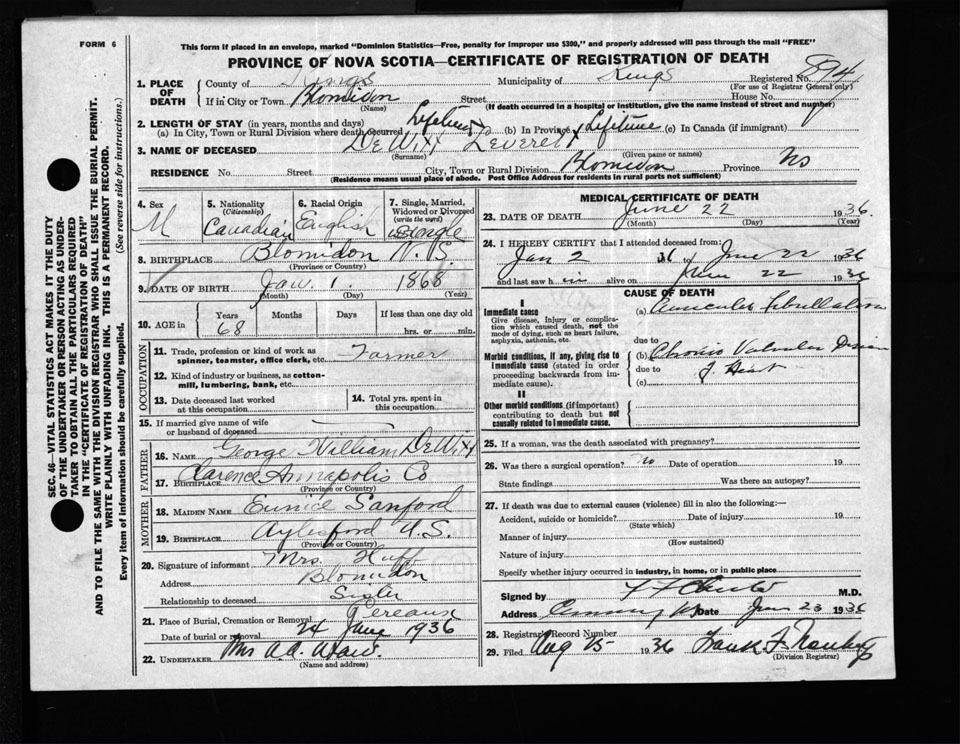 FORM 6
This form if placed in an envelope, marked "Dominion Statistics—Free, penalty for improper use $300," and properly addressed will pass through the mail "FREE"
PROVINCE OF NOVA SCOTIA—CERTIFICATE OF REGISTRATION OF DEATH
SEC. 46—VITAL STATISTICS ACT MAKES IT THE DUTY
OF THE UNDERTAKER OR PERSON ACTING AS UNDER-
TAKER TO OBTAIN ALL THE PARTICULARS REQUIRED
IN THE "CERTIFICATE OF REGISTRATION OF DEATH"
AND TO FILE THE SAME WITH THE DIVISION REGISTRAR WHO SHALL ISSUE THE BURIAL PERMIT.
WRITE PLAINLY WITH UNFADING INK. THIS IS A PERMANENT RECORD.
Every item of information should be carefully supplied. (See reverse side for instructions.)
1. PLACE OF DEATH County of Kings Municipality of Kings Registered No. 894
(For use of Registrar General only)
If in City or Town Blomidon Street House No.
(Name) (If death occurred in a hospital or institution, give the name instead of street and number)
2. LENGTH OF STAY (in years, months and days)
(a) In City, Town or Rural Division where death occurred Lifetime (b) In Province Lifetime (c) In Canada (if immigrant)
3. NAME OF DECEASED DeWitt Leverett
(Surname) (Given name or names)
RESIDENCE No. Street City, Town or Rural Division Blomidon Province NS
(Residence means usual place of abode. Post Office Address for residents in rural parts not sufficient)
4. Sex M
5. Nationality (Citizenship) Canadian
6. Racial Origin English
7. Single, Married, Widowed or Divorced (write the word) Single
8. BIRTHPLACE Blomidon N.S.
(Province or Country)
9. DATE OF BIRTH Jan. 1 1868
(Month) (Day) (Year)
10. AGE in Years 68 Months Days If less than one day old
hrs. or min.
OCCUPATION
11. Trade, profession or kind of work as spinner, teamster, office clerk, etc. Farmer
12. Kind of industry or business, as cotton-mill, lumbering, bank, etc.
13. Date deceased last worked at this occupation
14. Total yrs. spent in this occupation
15. If married give name of wife or husband of deceased
FATHER
16. NAME George William DeWitt
17. BIRTHPLACE Clarence Annapolis Co
(Province or Country)
MOTHER
18. MAIDEN NAME Eunice Sanford
19. BIRTHPLACE Aylesford N.S.
(Province or Country)
20. Signature of informant Mrs. Huff
Address Blomidon
Relationship to deceased Sister
21. Place of Burial, Cremation or Removal Pereaux
Date of burial or removal 24 June 1936
22. UNDERTAKER Mrs A.A.
(Name and address)
MEDICAL CERTIFICATE OF DEATH
23. DATE OF DEATH June 22 1936.
(Month) (Day) (Year)
24. I HEREBY CERTIFY that I attended deceased from:
Jan 2 36 to June 22 1936
and last saw h im alive on June 22 1936
CAUSE OF DEATH
I
Immediate cause
Give disease, injury or complication which caused death, not the mode of dying, such as heart failure, asphyxia, asthenia, etc.
(a) Auricular Fibrillation
due to
Morbid conditions, if any, giving rise to immediate cause (stated in order proceeding backwards from immediate cause).
(b) Chronic Valvular Disease
due to of Heart
(c)
II
Other morbid conditions (if important) contributing to death but not causally related to immediate cause.
25. If a woman, was the death associated with pregnancy?
26. Was there a surgical operation? No Date of operation 19
State findings Was there an autopsy?
27. If death was due to external causes (violence) fill in also the following:
Accident, suicide or homicide? Date of injury 19
(State which)
Manner of injury
(How sustained)
Nature of injury
Specify whether injury occurred in industry, in home, or in public place
Signed by M.D.
Address Canning NS Date June 23 1936
28. Registrar Record Number
29. Filed Aug 15 1936 Frank F.
(Division Registrar)